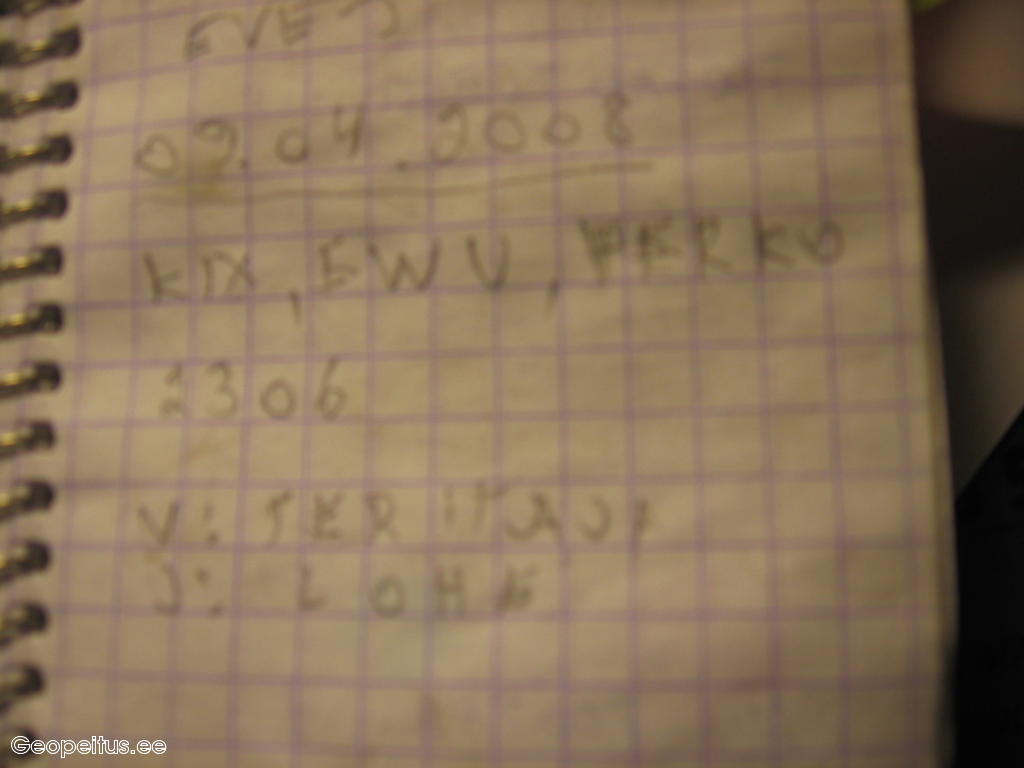 EVE J
09.04.2008
KIX, EWU,
2306
V: TERITAJA
J: LOHE
Geopeitus.ee